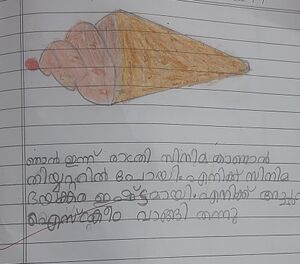 ഞാൻ ഇന്ന് രാത്രി സിനിമ കാണാൻ
തിയ്യറ്ററിൽ പോയി. എനിക്ക് സിനിമ
ഭയങ്കര ഇഷ്ട്ടമായി. എനിക്ക് അച്ഛ
ഐസ്ക്രീം വാങ്ങി തന്നു